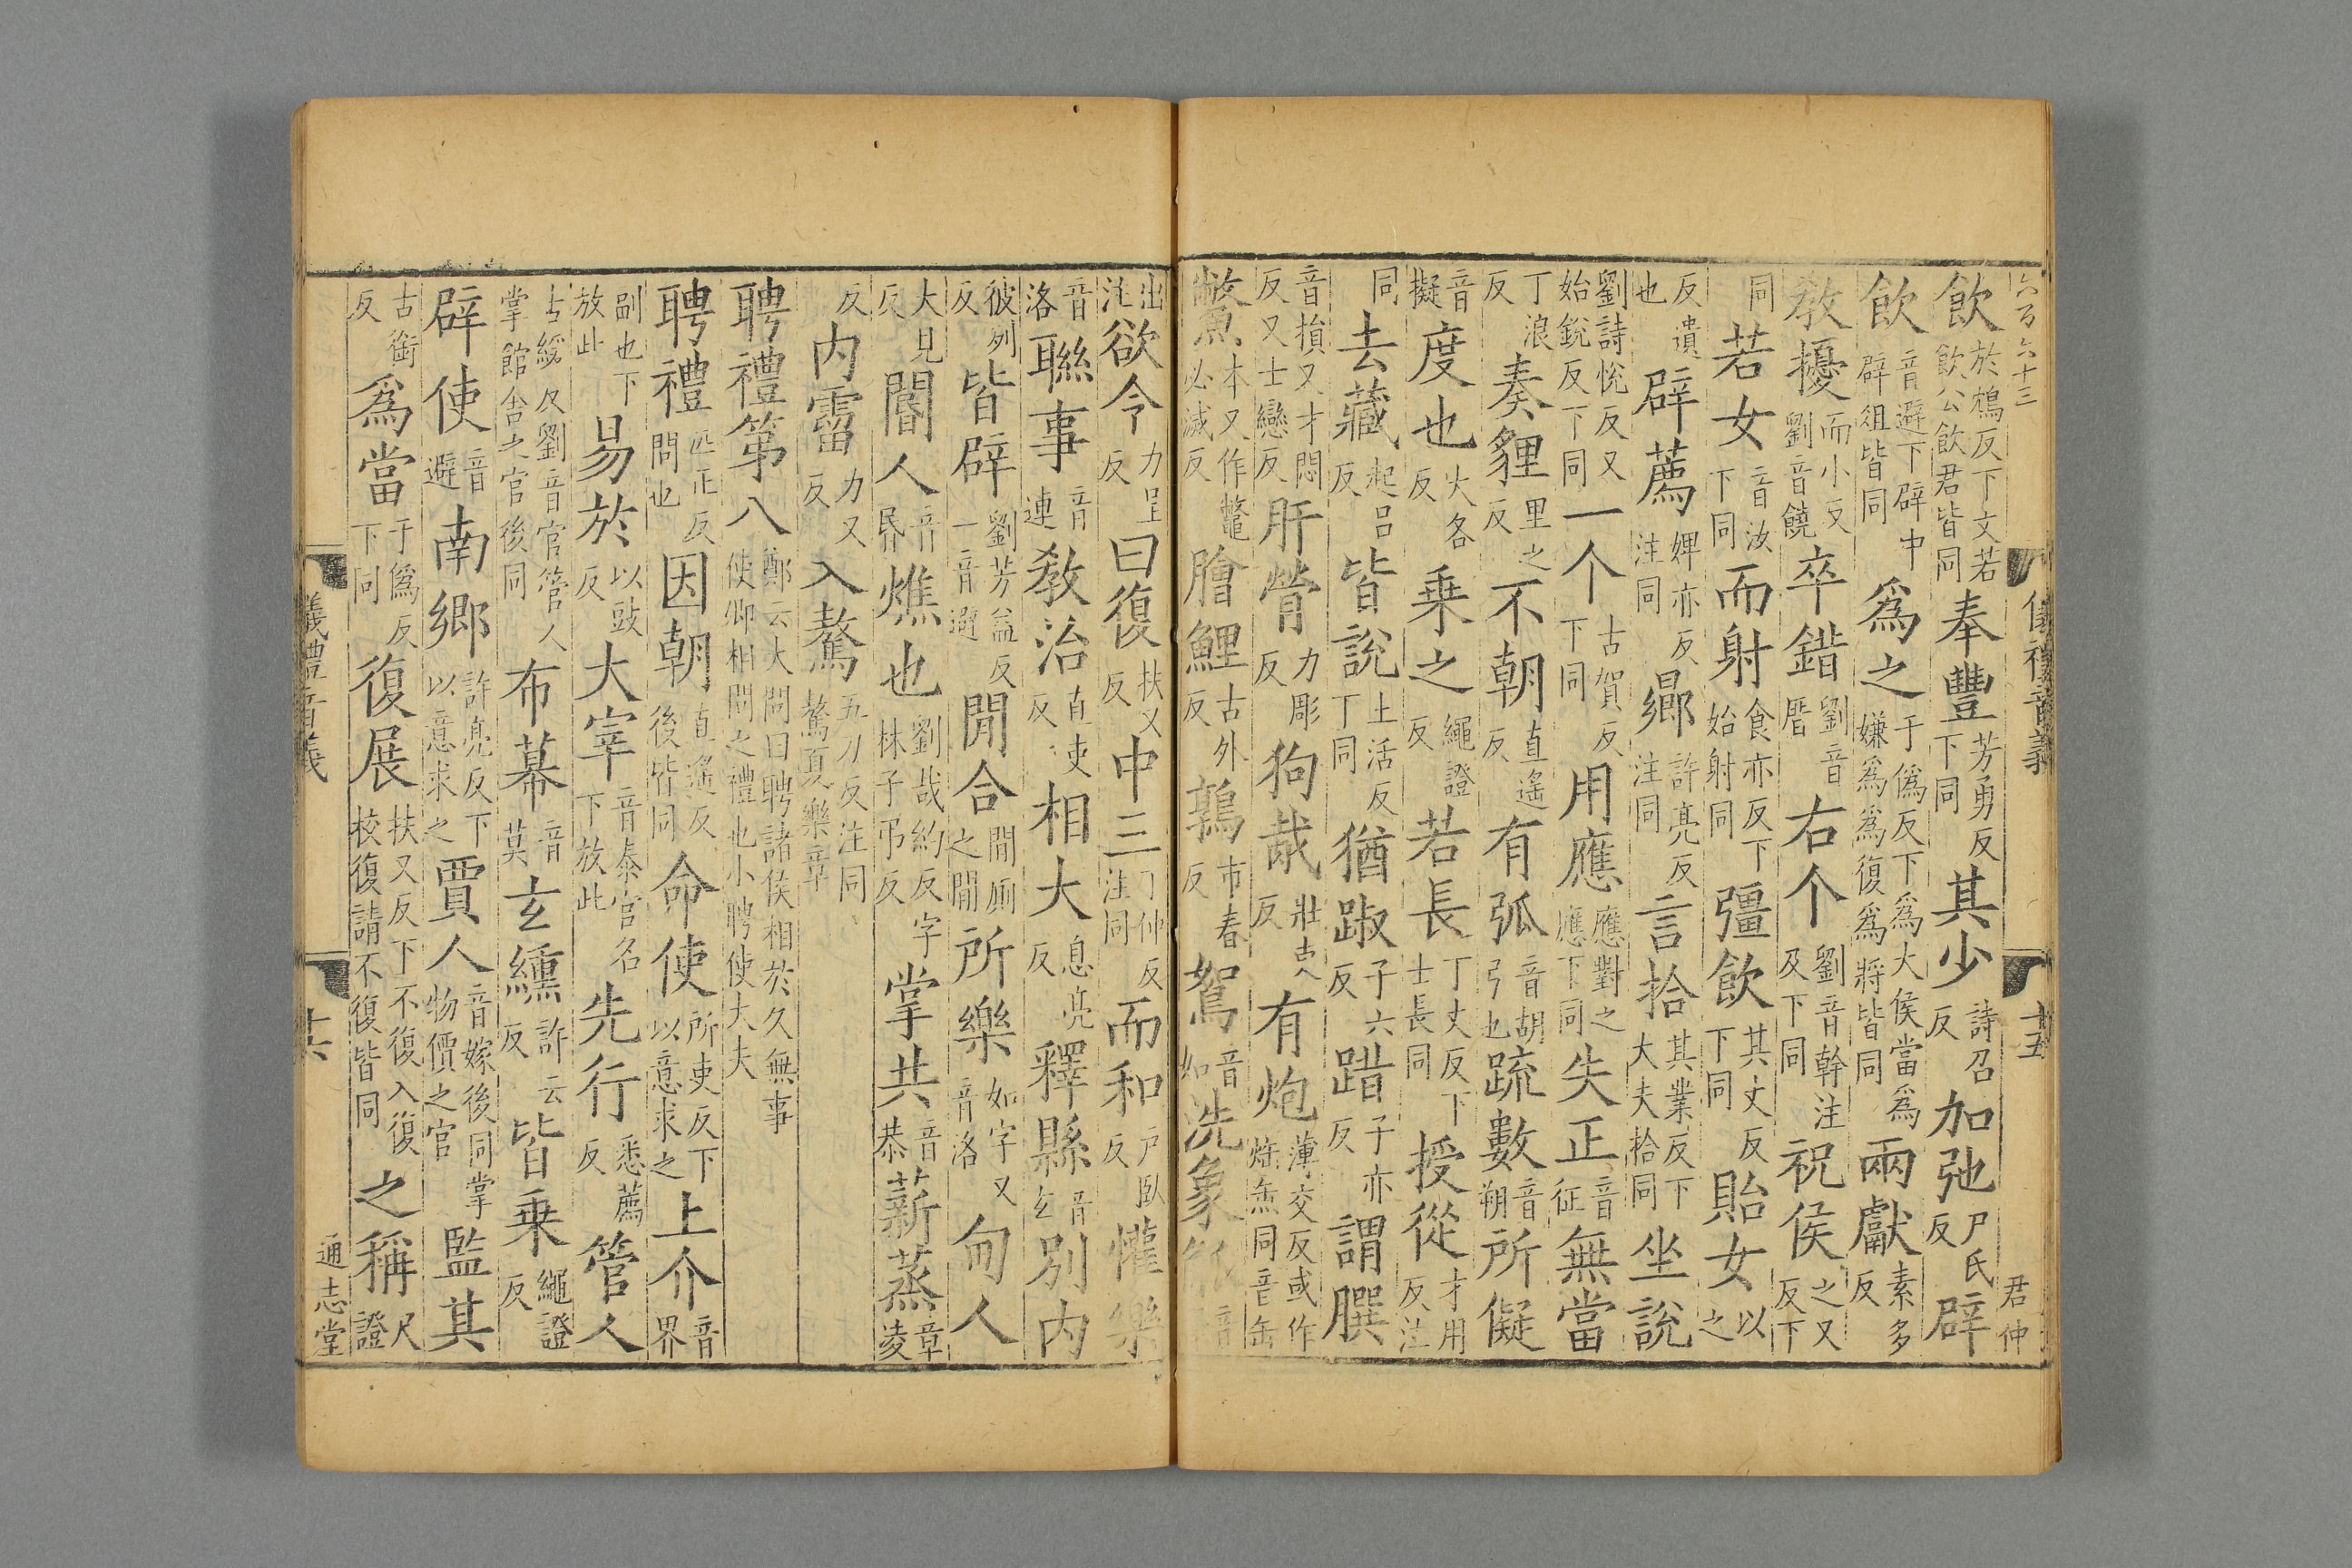 六百六十三
儀禮音義
十五
君仲
飲於鴆反下文若飲公飲君皆同奉豐芳勇反下同其少詩召反加弛尸氏反辟
飲音避下辟中辟俎皆同爲之于僞反下爲大侯當爲嫌爲爲復爲將皆同兩獻素多反
教擾而小反劉音饒卒錯劉音厝右个劉音幹注及下同祝侯之又反下
同若女音汝下同而射食亦反下始射同彊飲其丈反下同貽女以之
反遺也辟薦婢亦反注同鄉許亮反注同言拾其業反下大夫拾同坐說
劉詩悅反又始銳反下同一个古賀反下同用應應對之應下同失正音征無當
丁浪反奏貍里之反不朝直遙反有弧音胡弓也疏數音朔所儗
音擬度也火各反乘之繩證反若長丁丈反下士長同授從才用反注
同去藏起呂反皆說土活反下同猶踧子六反踖子亦反謂膶
音損又才悶反又士戀反肝膋力彫反狗胾壯吏反有炮薄交反或作炰缹同音缶
鱉本又作鼈必滅反膾鯉古外反鶉市春反鴽音如洗象音
出注欲令力呈反曰復扶又反中三丁仲反注同而和戶臥反懽樂
音洛聯事音連教治直吏反相大息亮反釋縣音玄別內
彼列反皆辟劉芳益反一音避閒合閒廁之閒所樂如字又音洛甸人
大見反閽人音昏燋也劉哉約反字林子弔反掌共音恭薪蒸章凌
反內霤力又反入驁五刀反注同驁夏樂章
聘禮第八鄭云大問曰聘諸侯相於久無事使卿相問之禮也小聘使大夫
聘禮匹正反問也因朝直遙反後皆同命使所吏反下以意求之上介音界
副也下放此易於以豉反大宰音泰官名下放此先行悉薦反管人
古緩反劉音官管人掌館舍之官後同布幕音莫玄纁許云反皆乘繩證反
辟使音避南鄉許亮反下以意求之賈人音嫁後同掌物價之官監其
古銜反爲當于僞反下同復展扶又反下不復入復校復請不復皆同之稱尺證
儀禮音義
十六
通志堂